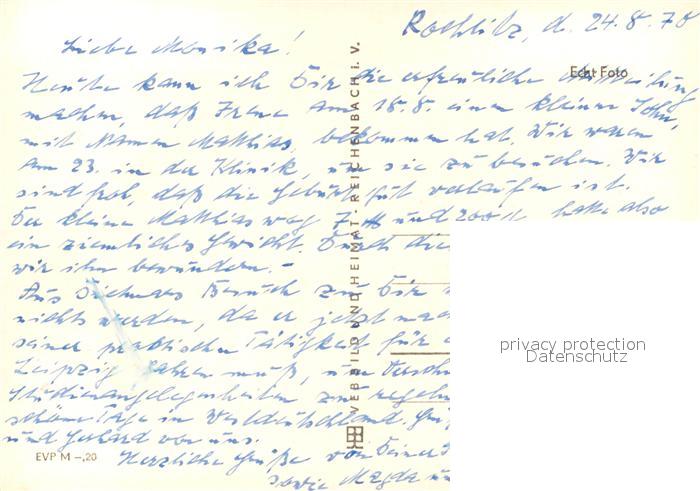 Rochlitz, d. 24.8.70
Liebe Monika!
Echt Foto
Heute kann ich Dir die erfreuliche Mitteilung
machen, daß Irene am 18.8. einen kleinen Sohn,
mit Namen Matthias, bekommen hat. Wir waren
am 23. in der Klinik, um sie zu besuchen. Wir
sind froh, daß die Geburt gut verlaufen ist.
Der kleine Matthias wog 7 und 200 g, hatte also
ein ziemliches Gewicht. Durch die
wir ihn bewundern. –
Aus Dietmars Besuch zu Dir
nichts werden, da er jetzt
seiner praktischen Tätigkeit für
Leipzig fahren muß, um
Studienangelegenheiten zu regeln
schöne Tage in Westdeutschland.
und Gerhard von uns.
Herzliche Grüße von Deiner
sowie Magda
VEB BILD UND HEIMAT · REICHENBACH i. V.
EVP M –,20
privacy protection
Datenschutz